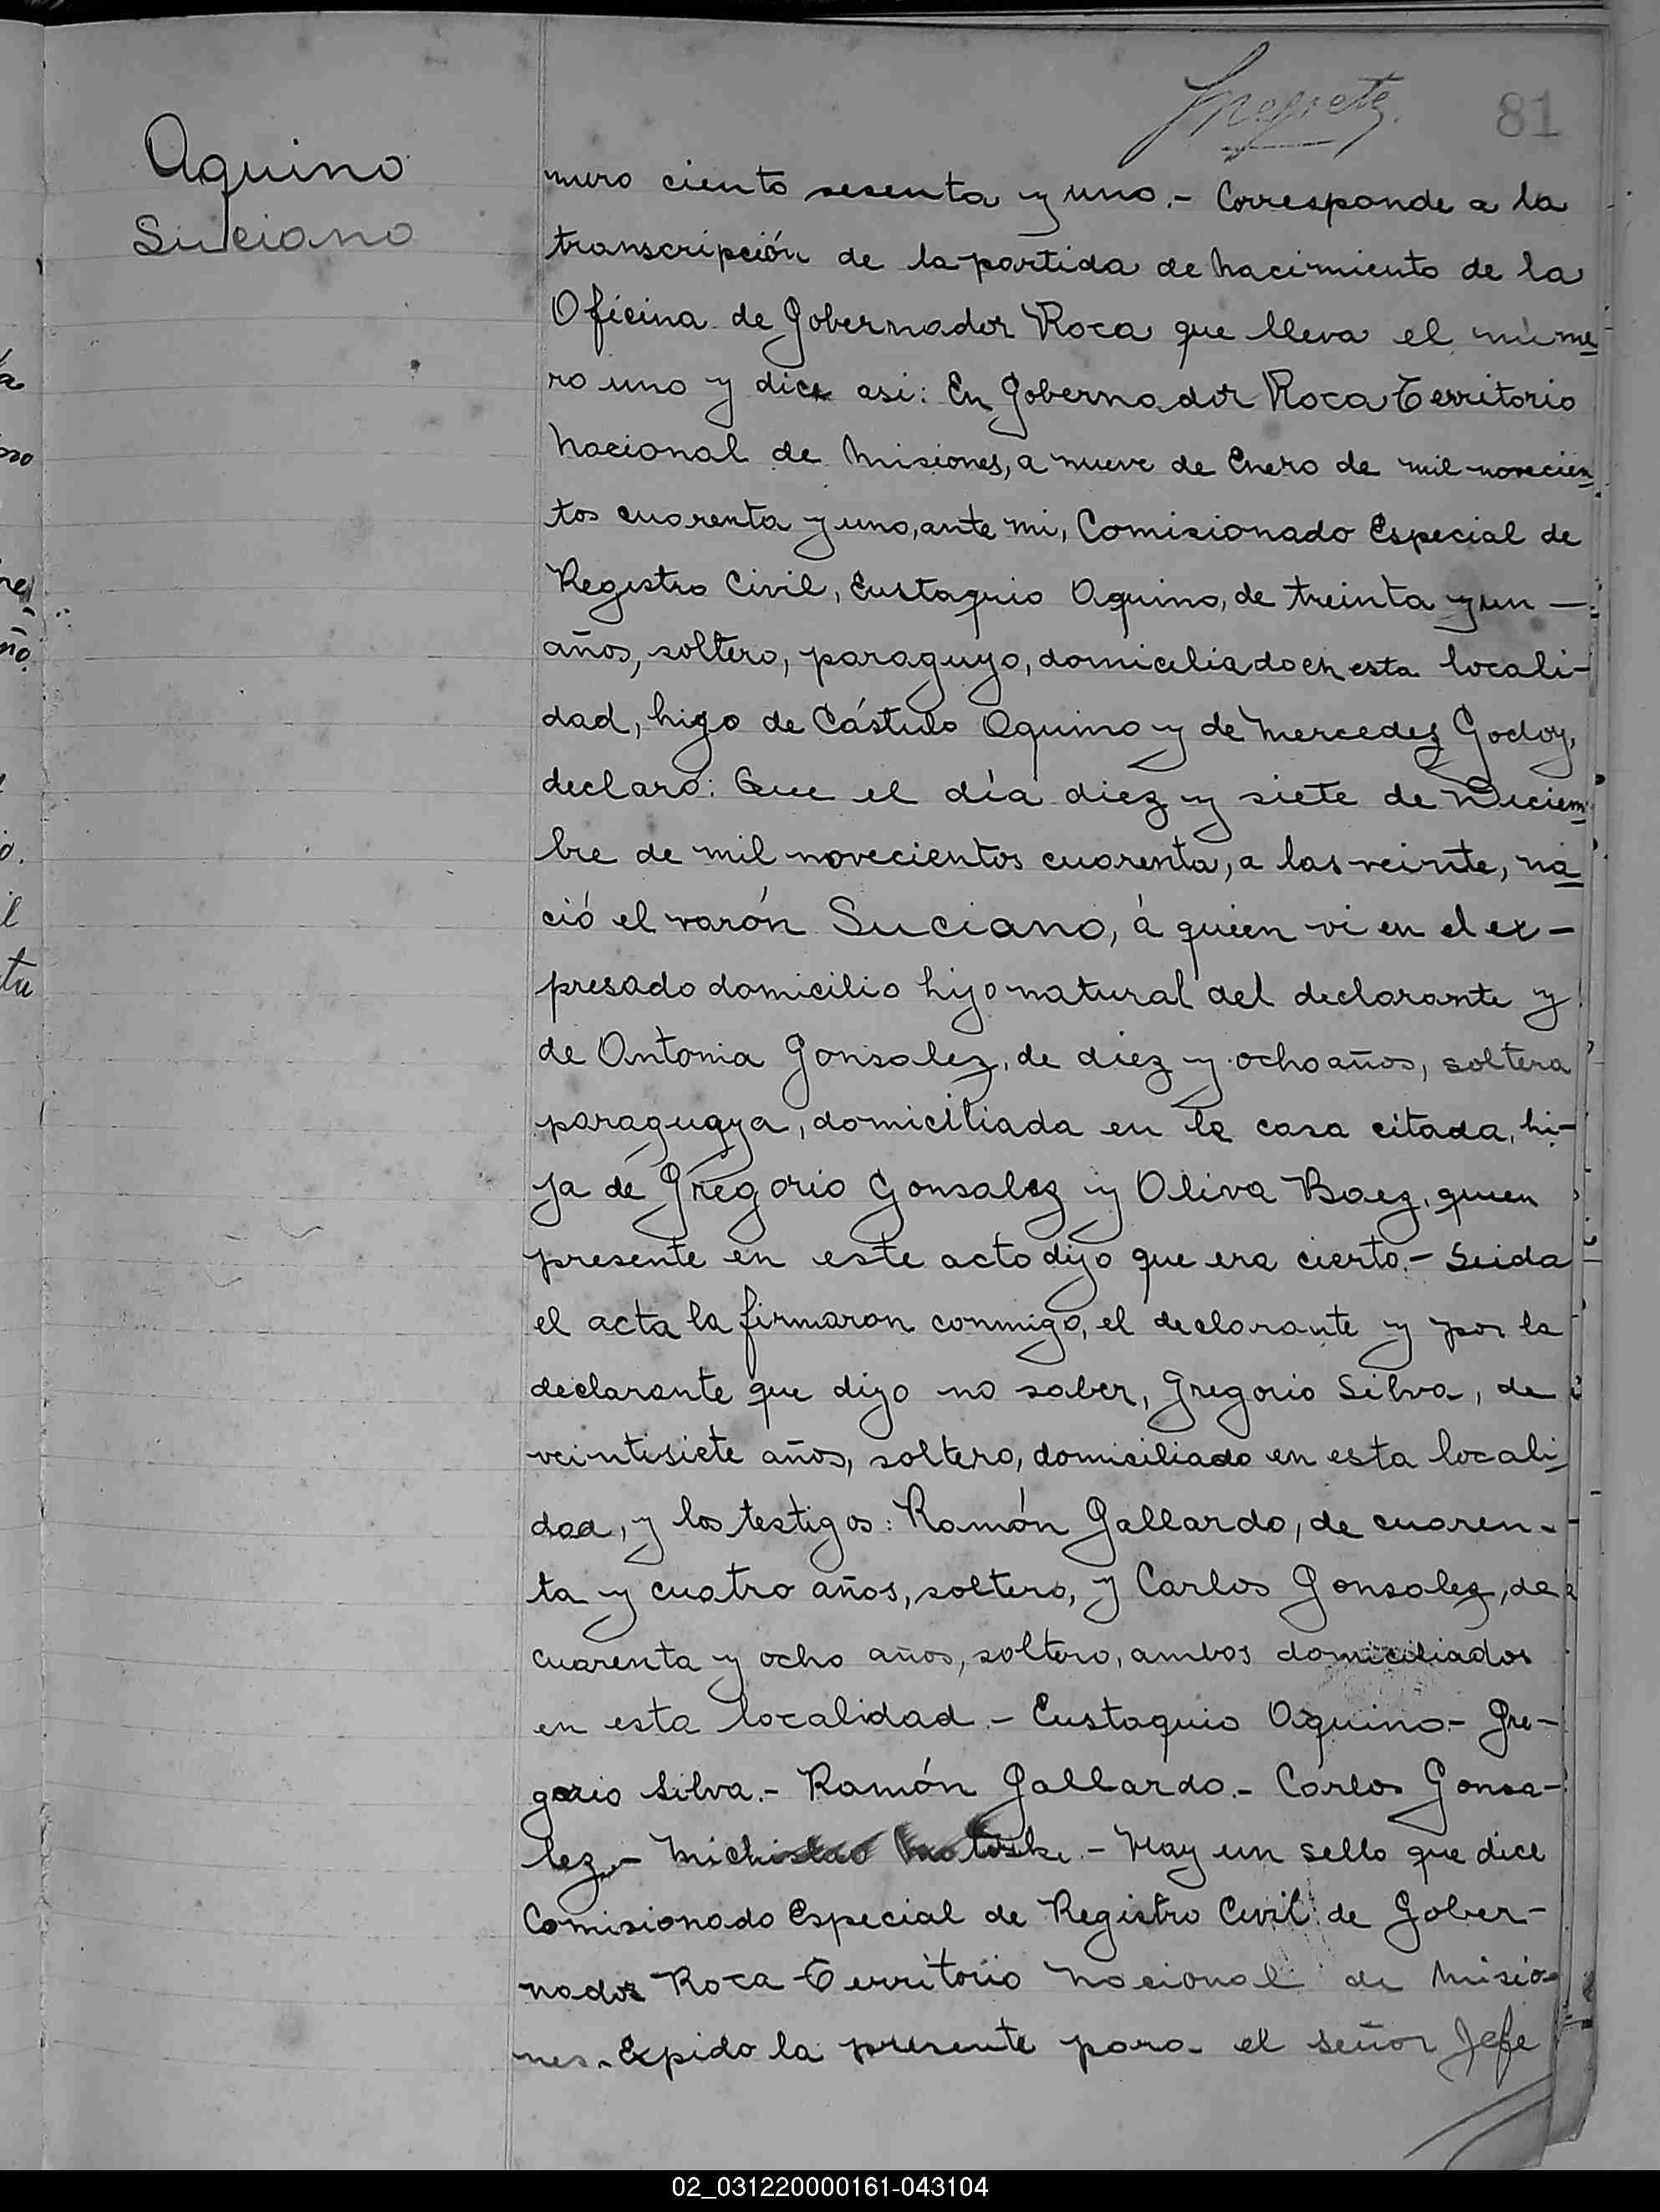 81
Aquino
Luciano
mero ciento sesenta y uno.- Corresponde a la
transcripción de la partida de nacimiento de la
Oficina de Gobernador Roca que lleva el núme
ro uno y dice asi: En Gobernador Roca Territorio
Nacional de Misiones, a nueve de Enero de mil novecien
tos cuarenta y uno, ante mi, Comisionado Especial de
Registro Civil, Eustaquio Aquino, de treinta y un —
años, soltero, paraguyo, domiciliado en esta locali-
dad, higo de Cástulo Aquino y de Mercedes Godoy,
declaró: Que el día diez y siete de Diciem
bre de mil novecientos cuarenta, a las veinte, na
ció el varón Luciano, á quien vi en el ex-
presado domicilio hijo natural del declarante y
de Antonia Gonsalez, de diez y ocho años, soltera
paraguaya, domiciliada en la casa citada, hi-
ja de Gregorio Gonsalez y Oliva Baez, quien
presente en este acto dijo que era cierto.- Leida
el acta la firmaron conmigo, el declarante y por la
declarante que dijo no saber, Gregorio Silva, de
veintisiete años, soltero, domisiliado en esta locali
dad, y los testigos: Ramón Gallardo, de cuaren-
ta y cuatro años, soltero, y Carlos Gonsalez, de
cuarenta y ocho años, soltero, ambos domiciliados
en esta localidad.- Eustaquio Aquino.- Gre-
gorio Silva.- Ramón Gallardo.- Carlos Gonsa-
lez.- - Hay un sello que dice
Comisionado Especial de Registro Civil de Gober-
nador Roca Territorio Nacional de Misio-
nes.- Expido la presente para el señor Jefe
02_031220000161-043104